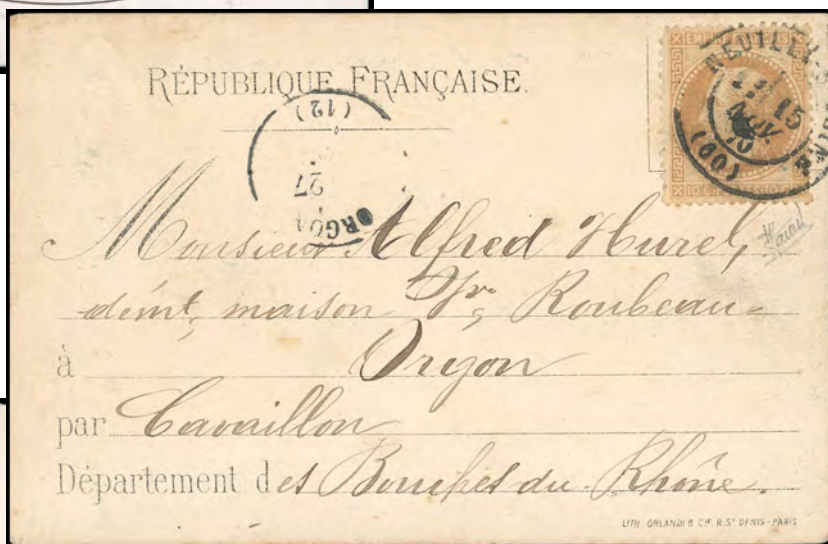 RÉPUBLIQUE FRANÇAISE.
EMPIRE FRANÇAIS
NEUILLY-S
15
NOV.
70
(60)
10 C 10 C
(12)
27
ORGON
Monsieur Alfred Hurel,
demt, maison Vve Roubeau
à Orgon
par Cavaillon
Département des Bouches du Rhône.
LITH. ORLANDI & Cie, R. St DENIS - PARIS